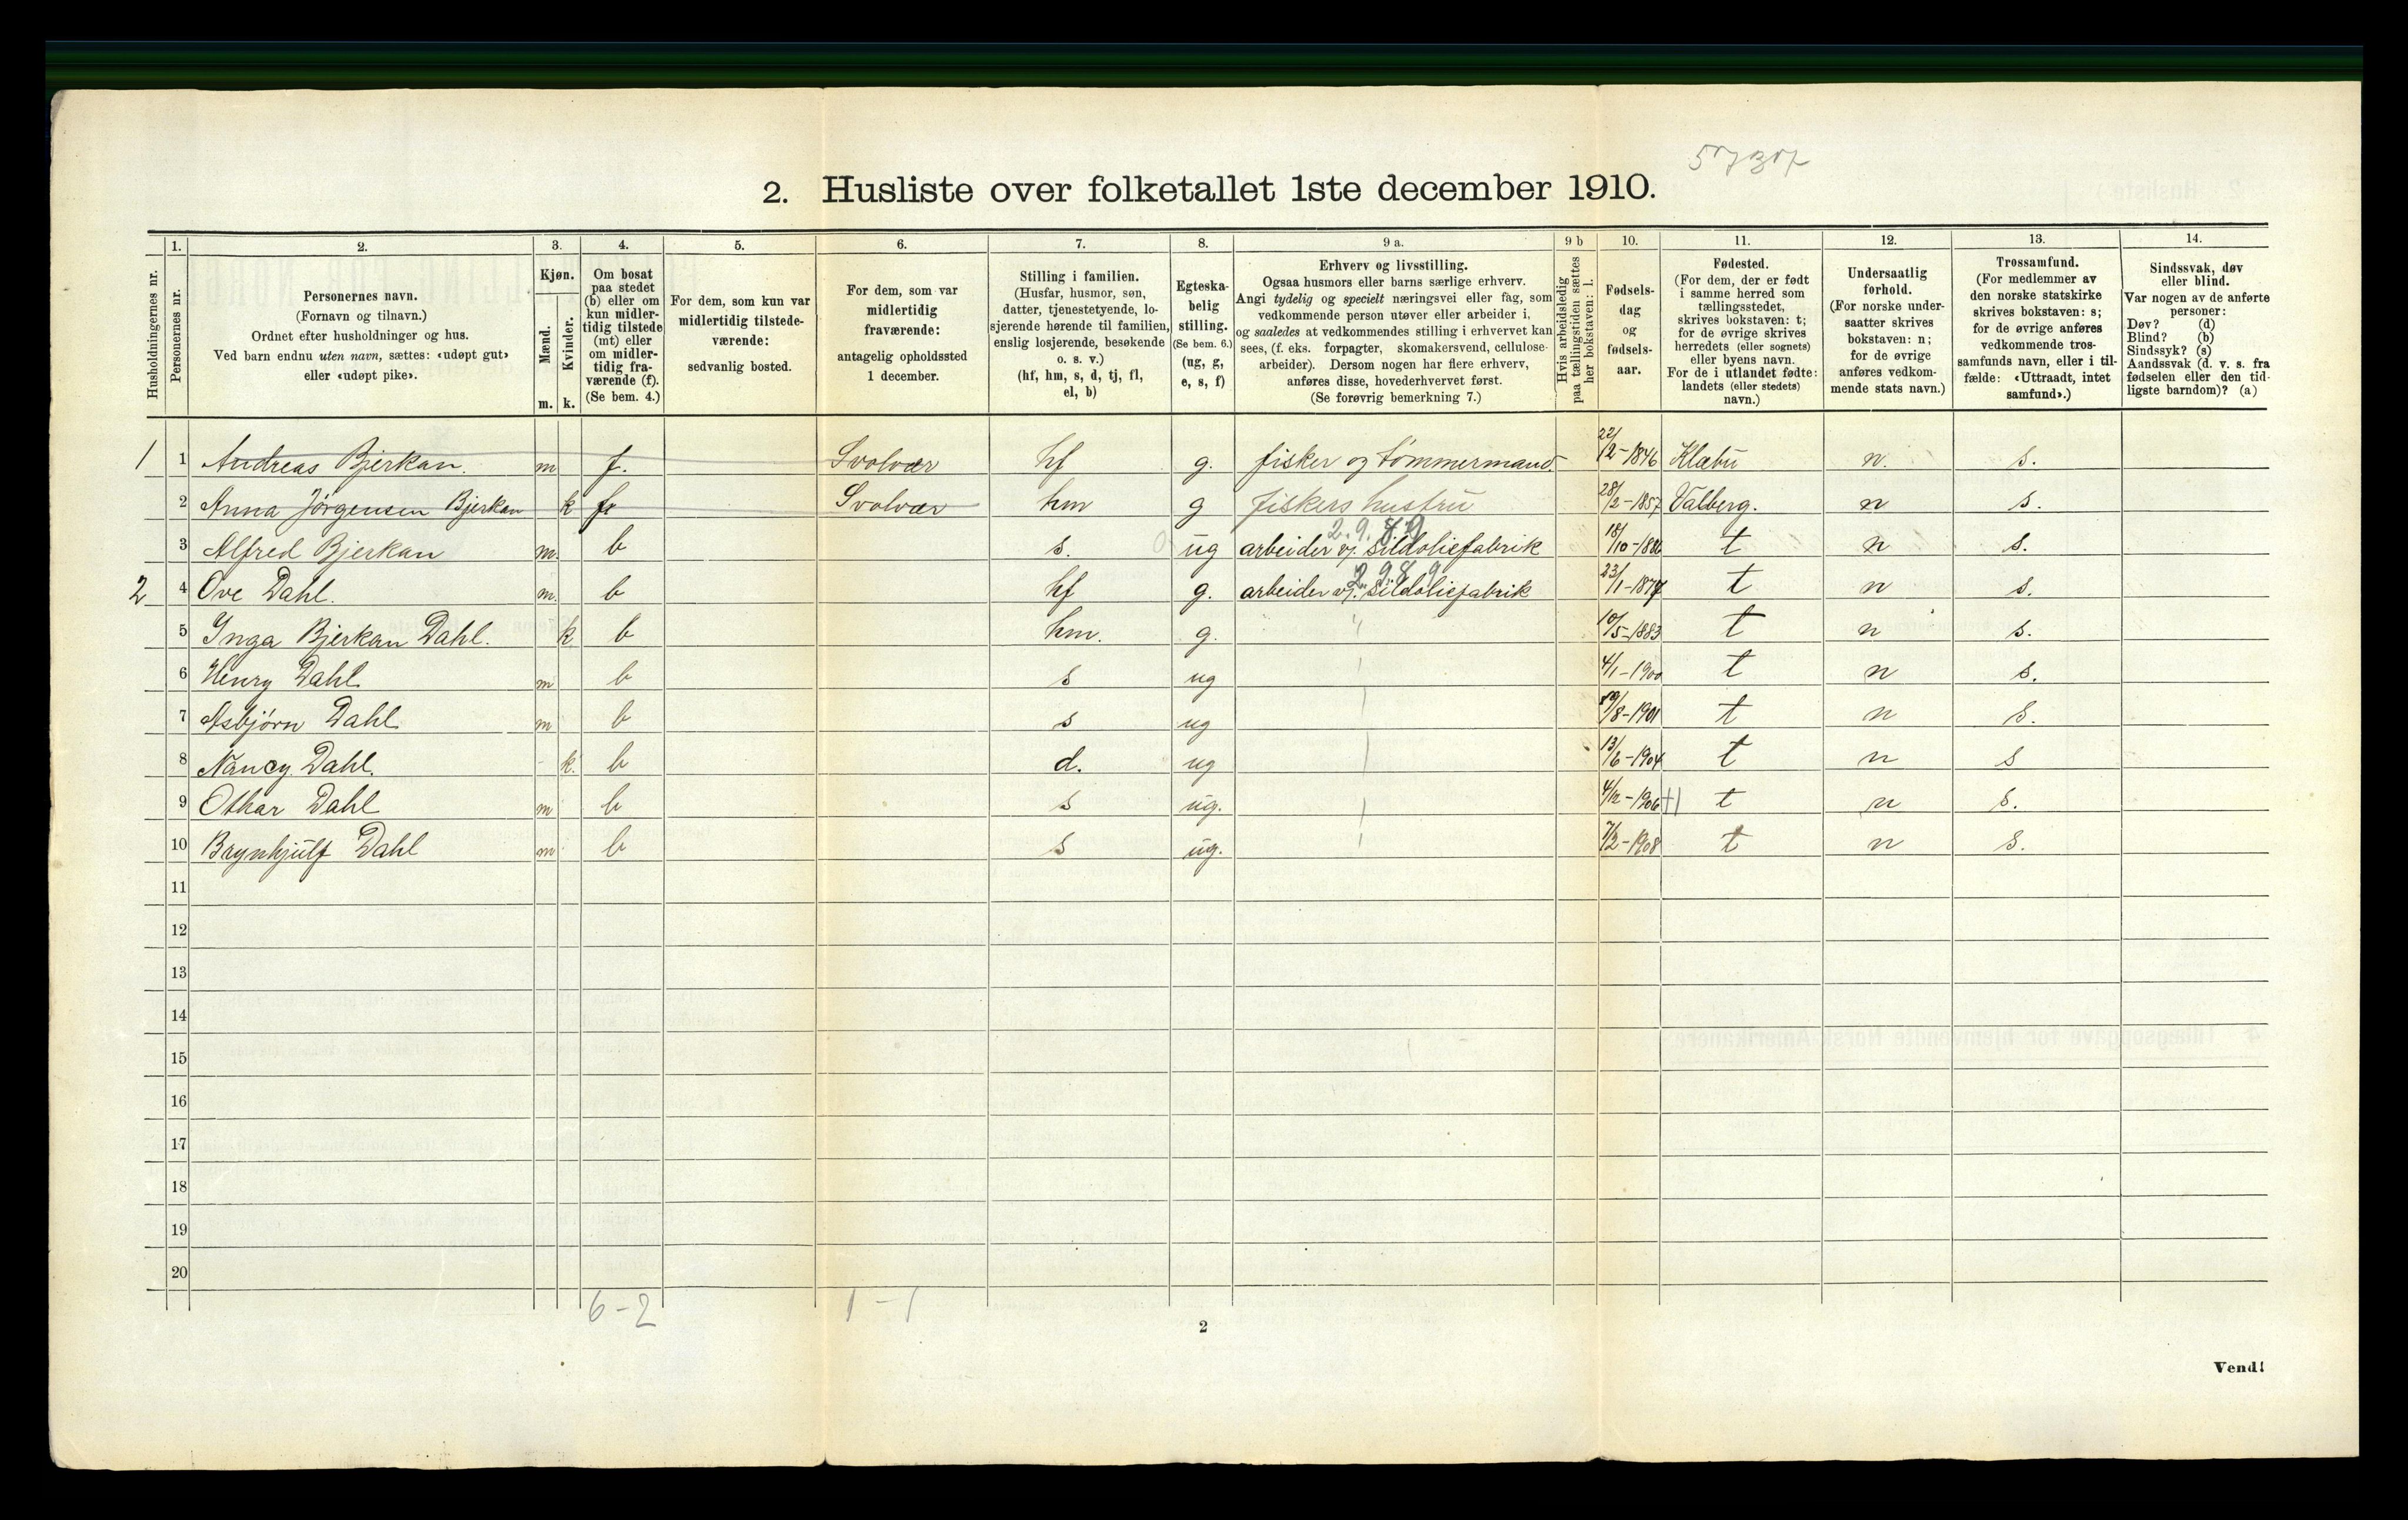 5737
2. Husliste over folketallet 1ste december 1910.
Husholdningernes nr.
1. Personernes nr.
2. Personernes navn. (Fornavn og tilnavn.) Ordnet efter husholdninger og hus. Ved barn endnu uten navn, sættes: «udøpt gut» eller «udøpt pike».
3. Kjøn. Mænd. m. Kvinder. k.
4. Om bosat paa stedet (b) eller om kun midler-tidig tilstede (mt) eller om midler-tidig fra-værende (f). (Se bem. 4.)
5. For dem, som kun var midlertidig tilstede-værende: sedvanlig bosted.
6. For dem, som var midlertidig fraværende: antagelig opholdssted 1 december.
7. Stilling i familien. (Husfar, husmor, søn, datter, tjenestetyende, lo-sjerende hørende til familien, enslig losjerende, besøkende o. s. v.) (hf, hm, s, d, tj, fl, el, b)
8. Egteska-belig stilling. (Se bem. 6.) (ug, g, e, s, f)
9 a. Erhverv og livsstilling. Ogsaa husmors eller barns særlige erhverv. Angi tydelig og specielt næringsvei eller fag, som vedkommende person utøver eller arbeider i, og saaledes at vedkommendes stilling i erhvervet kan sees, (f. eks. forpagter, skomakersvend, cellulose-arbeider). Dersom nogen har flere erhverv, anføres disse, hovederhvervet først. (Se forøvrig bemerkning 7.)
9 b Hvis arbeidsledig paa tællingstiden sættes her bokstaven: l.
10. Fødsels-dag og fødsels-aar.
11. Fødested. (For dem, der er født i samme herred som tællingsstedet, skrives bokstaven: t; for de øvrige skrives herredets (eller sognets) eller byens navn. For de i utlandet fødte: landets (eller stedets) navn.)
12. Undersaatlig forhold. (For norske under-saatter skrives bokstaven: n; for de øvrige anføres vedkom-mende stats navn.)
13. Trossamfund. (For medlemmer av den norske statskirke skrives bokstaven: s; for de øvrige anføres vedkommende tros-samfunds navn, eller i til-fælde: «Uttraadt, intet samfund».)
14. Sindssvak, døv eller blind. Var nogen av de anførte personer: Døv? (d) Blind? (b) Sindssyk? (s) Aandssvak (d. v. s. fra fødselen eller den tid-ligste barndom)? (a)
1 1 Andreas Bjerkan. m f. Svolvær hf g. fisker og tømmermand. 22/12-1846 Klæbu n. s.
2 Anna Jørgensen Bjerkan k f Svolvær hm g fiskers hustru 28/2-1857 Valberg. n s.
2.9.89
3 Alfred Bjerkan m. b s. ug arbeider v. sildoliefabrik 18/10-1886 t n s.
2989
2 4 Ove Dahl. m. b hf g. arbeider v. sildoliefabrik 23/1-1877 t n s.
5 Inga Bjerkan Dahl. k b hm. g. " 10/5-1883 t n s.
6 Henry Dahl m b s ug 4/1-1900 t n s.
7 Asbjørn Dahl m b s ug /8-1901 t n s.
8 Nancy Dahl. k. b d. ug 13/6-1904 t n s
9 Othar Dahl m b s ug. 4/12-1906 t n s.
10 Brynhjulf Dahl m b s ug. 7/2-1908 t n s.
11
12
13
14
15
16
17
18
19
20
6-2 1-1
2
Vend!